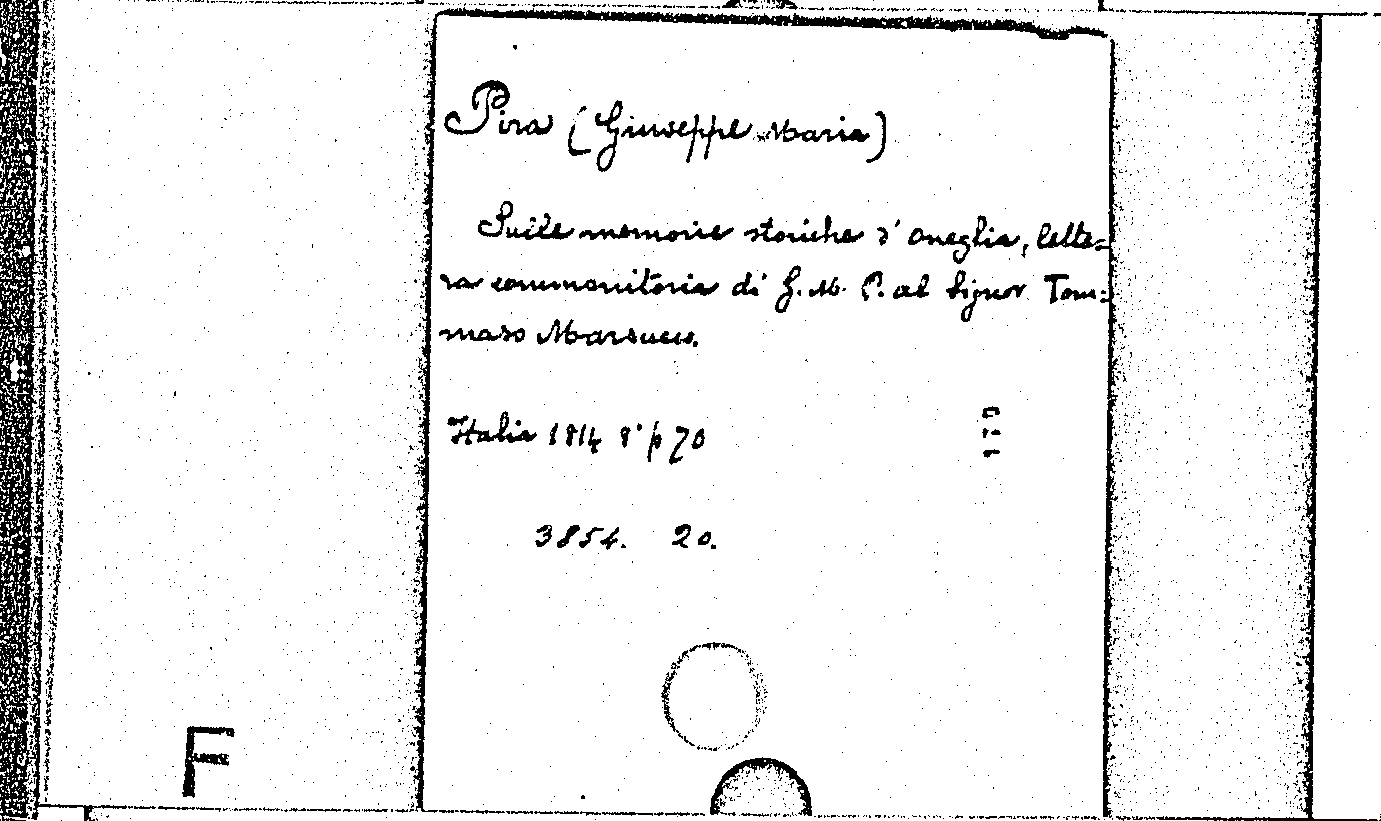 Pira (Giuseppe Maria)
Sulle memorie storiche d'Oneglia, lette=
ra commonitoria di G. M. P. al Signor Tom=
maso Marsucco.
Italia 1814 8° p 70
3854. 20.
F